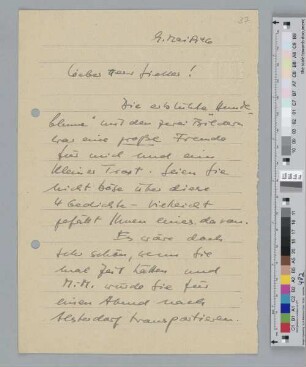 9. Mai 1946
Lieber Herr
Die erblühte
blume" mit den zwei Bildern
war eine große Freude
für mich und ein
kleiner Trost. Seien Sie
nicht böse über diese
4 Gedichte - vielleicht
gefällt Ihnen eines davon.
Es wäre doch
sehr schön, wenn Sie
mal Zeit hätten und
M.-M. würde Sie für
einen Abend nach
Alsterdorf transportieren.